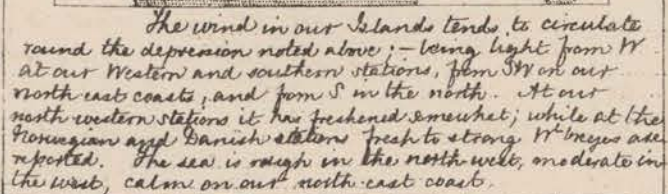 The wind in our Islands tends to circulate
round the depression noted above; - being light from W
at our Western and southern stations, from SW on our
north east coasts, and from S in the north. At our
north western stations it has freshened somewhat; while at the
Norwegian and Danish stations fresh to strong Wly breezes are
reported. The sea is rough in the north west, moderate in
the west, calm on our north east coast.